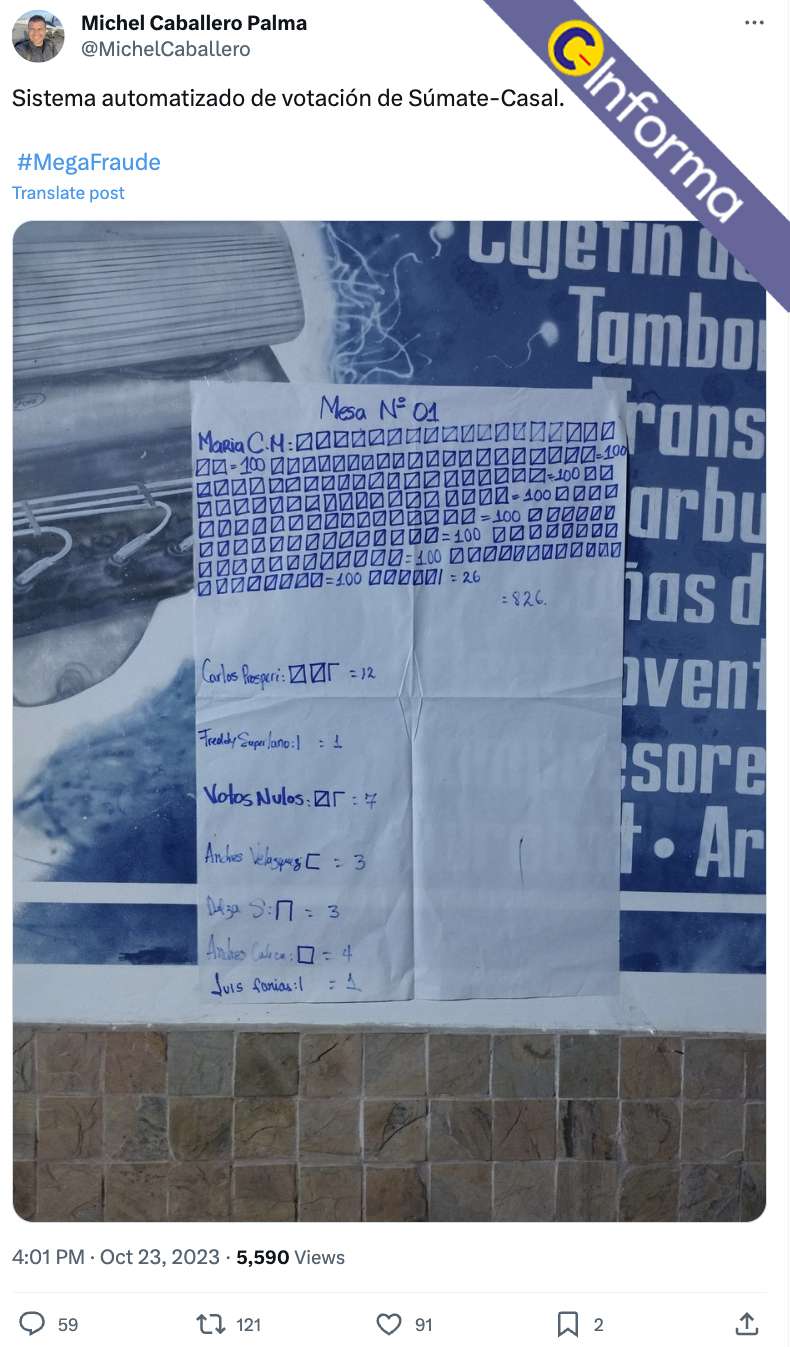 Michel Caballero Palma
@MichelCaballero
CInforma
Sistema automatizado de votación de Súmate-Casal.
#MegaFraude
Translate post
Cojetín de
Tambo
Trans
arbu
ñas d
ovent
sore
t • Ar
Mesa Nº 01
Maria C.M:
= 100 =100
=100
= 100
=100
=100
=100
=100 = 26
=826.
Carlos Prosperi: =12
Freddy Superlano: = 1
Votos Nulos: = 7
Andres Velasquez = 3
Delza S: = 3
Andres Caleca: = 4
Luis farias: = 1
4:01 PM · Oct 23, 2023 · 5,590 Views
59 121 91 2